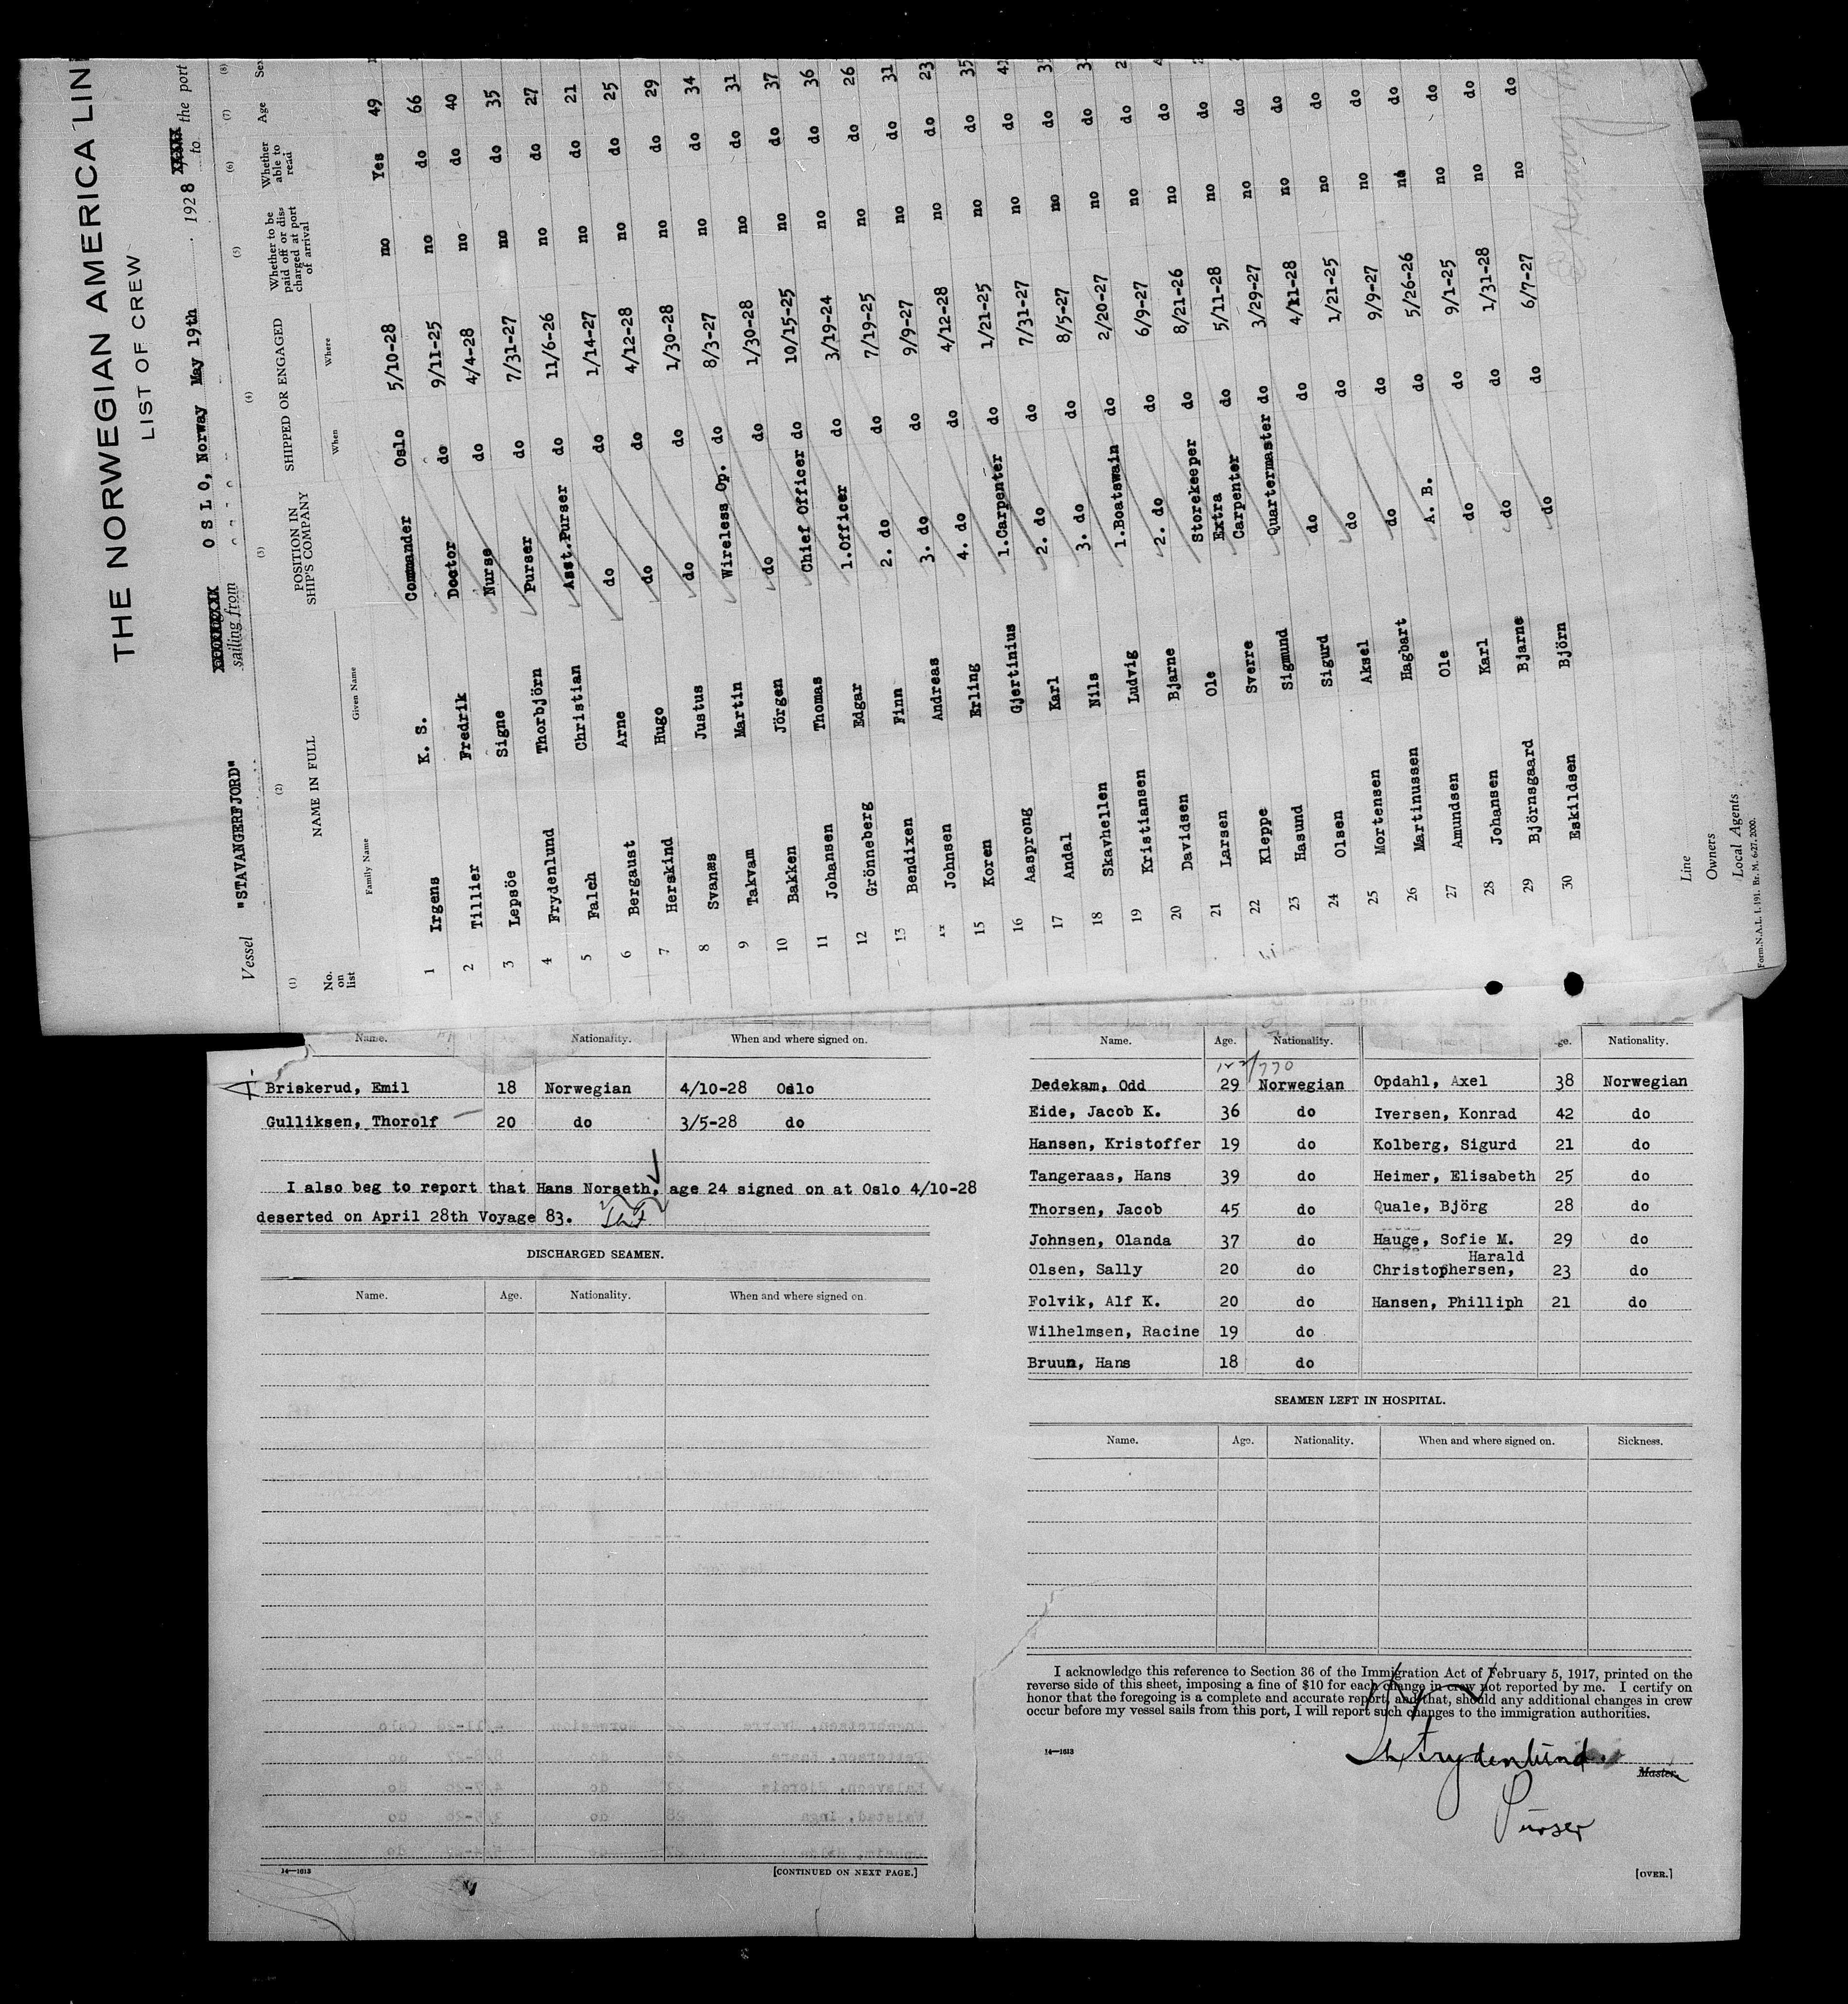 THE NORWEGIAN AMERICA LIN
LIST OF CREW
OSLO, Norway May 19th 1928
Vessel "STAVANGERFJORD" sailing from to the port
(1) (2) (3) (4) (5) (6) (7) (8)
No. on list NAME IN FULL POSITION IN SHIP'S COMPANY SHIPPED OR ENGAGED Whether to be paid off or discharged at port of arrival Whether able to read Age Sex
Family Name Given Name When Where
1 Irgens K. S. Commander Oslo 5/10-28 no Yes 49
2 Tillier Fredrik Doctor do 9/11-25 no do 66
3 Lepsöe Signe Nurse do 4/4-28 no do 40
4 Frydenlund Thorbjörn Purser do 7/31-27 no do 35
5 Falch Christian Asst.Purser do 11/6-26 no do 27
6 Bergaust Arne do do 1/14-27 no do 21
7 Herskind Hugo do do 4/12-28 no do 25
8 Svanæs Justus do do 1/30-28 no do 29
9 Takvam Martin Wireless Op. do 8/3-27 no do 34
10 Bakken Jörgen do do 1/30-28 no do 31
11 Johansen Thomas Chief Officer do 10/15-25 no do 37
12 Grönneberg Edgar 1.Officer do 3/19-24 no do 36
13 Bendixen Finn 2. do do 7/19-25 no do 26
14 Johnsen Andreas 3. do do 9/9-27 no do 31
15 Koren Erling 4. do do 4/12-28 no do 23
16 Aasprong Gjertinius 1.Carpenter do 1/21-25 no do 35
17 Andal Karl 2. do do 7/31-27 no do
18 Skavhellen Nils 3. do do 8/5-27 no do
19 Kristiansen Ludvig 1.Boatswain do 2/20-27 no do
20 Davidsen Bjarne 2. do do 6/9-27 no do
21 Larsen Ole Storekeeper do 8/21-26 no do
22 Kleppe Sverre Extra Carpenter do 5/11-28 no do
23 Hasund Sigmund Quartermaster do 3/29-27 no do
24 Olsen Sigurd do do 4/11-28 no do
25 Mortensen Aksel do do 1/21-25 no do
26 Martinussen Hagbart do do 9/9-27 no do
27 Amundsen Ole A. B. do 5/26-26 no do
28 Johansen Karl do do 9/1-25 no do
29 Björnsgaard Bjarne do do 1/31-28 no do
30 Eskildsen Björn do do 6/7-27 no do
Line
Owners
Local Agents
Form.N.A.L. 1.191. Br. M. 6-27. 2000.
Name. Nationality. When and where signed on.
Briskerud, Emil 18 Norwegian 4/10-28 Oslo
Gulliksen, Thorolf 20 do 3/5-28 do
I also beg to report that Hans Norseth, age 24 signed on at Oslo 4/10-28
deserted on April 28th Voyage 83.
DISCHARGED SEAMEN.
Name. Age. Nationality. When and where signed on.
14—1613 [CONTINUED ON NEXT PAGE.]
Name. Age. Nationality. Name. ge. Nationality.
Dedekam, Odd 29 Norwegian Opdahl, Axel 38 Norwegian
Eide, Jacob K. 36 do Iversen, Konrad 42 do
Hansen, Kristoffer 19 do Kolberg, Sigurd 21 do
Tangeraas, Hans 39 do Heimer, Elisabeth 25 do
Thorsen, Jacob 45 do Quale, Björg 28 do
Johnsen, Olanda 37 do Hauge, Sofie M. 29 do
Olsen, Sally 20 do Christophersen, Harald 23 do
Folvik, Alf K. 20 do Hansen, Philliph 21 do
Wilhelmsen, Racine 19 do
Bruun, Hans 18 do
SEAMEN LEFT IN HOSPITAL.
Name. Age. Nationality. When and where signed on. Sickness.
I acknowledge this reference to Section 36 of the Immigration Act of February 5, 1917, printed on the
reverse side of this sheet, imposing a fine of $10 for each change in crew not reported by me. I certify on
honor that the foregoing is a complete and accurate report, and that, should any additional changes in crew
occur before my vessel sails from this port, I will report such changes to the immigration authorities.
14—1613
Th Frydenlund.
Master.
Purser
[OVER.]